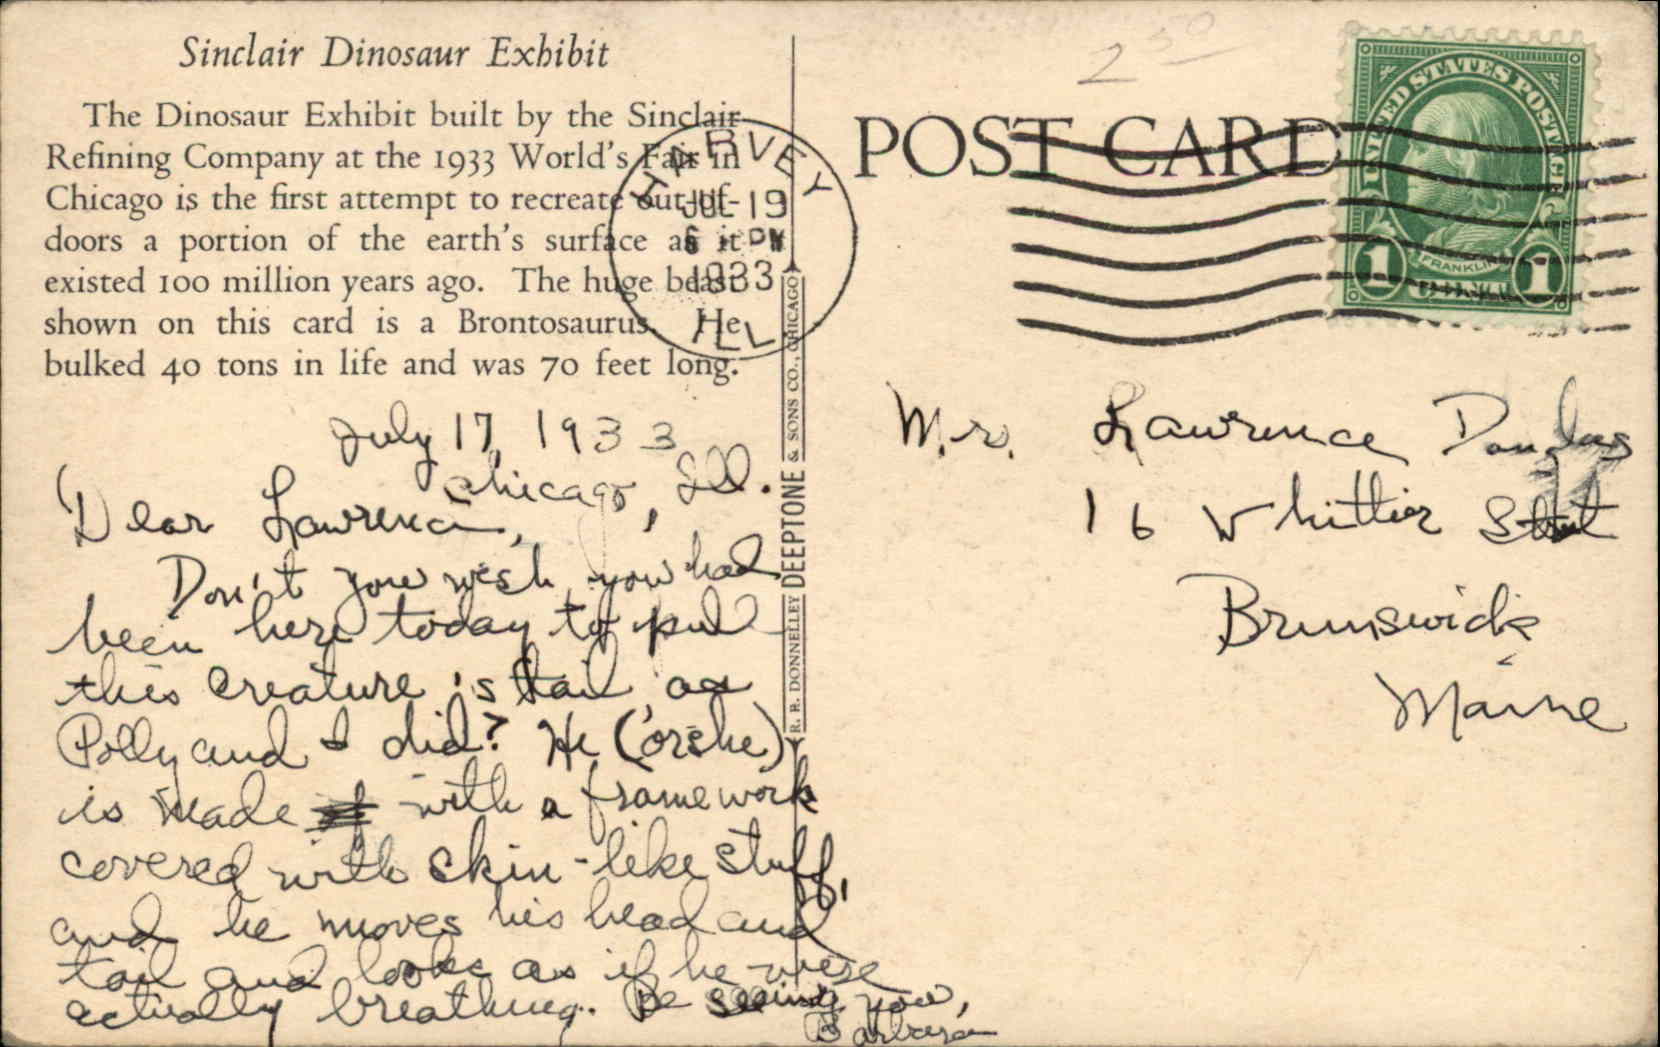 Sinclair Dinosaur Exhibit
The Dinosaur Exhibit built by the Sinclair
Refining Company at the 1933 World's Fair in
Chicago is the first attempt to recreate out-of-
doors a portion of the earth's surface as it
existed 100 million years ago. The huge beast
shown on this card is a Brontosaurus. He
bulked 40 tons in life and was 70 feet long.
July 17, 1933
Chicago, Ill.
Dear Lawrence,
Don't you wish you had
been here today to pull
this creature's tail as
Polly and I did? He (or she)
is made with a framework
covered with skin-like stuff,
and he moves his head and
tail and looks as if he were
actually breathing. Be seeing you,
Barbara
R. R. DONNELLEY DEEPTONE & SONS CO., CHICAGO
2 50
POST CARD
HARVEY
JUL 19
6 PM
1933
ILL
UNITED STATES POSTAGE
FRANKLIN
1 CENT 1
Mr. Lawrence Douglas
16 Whittier Street
Brunswick
Maine